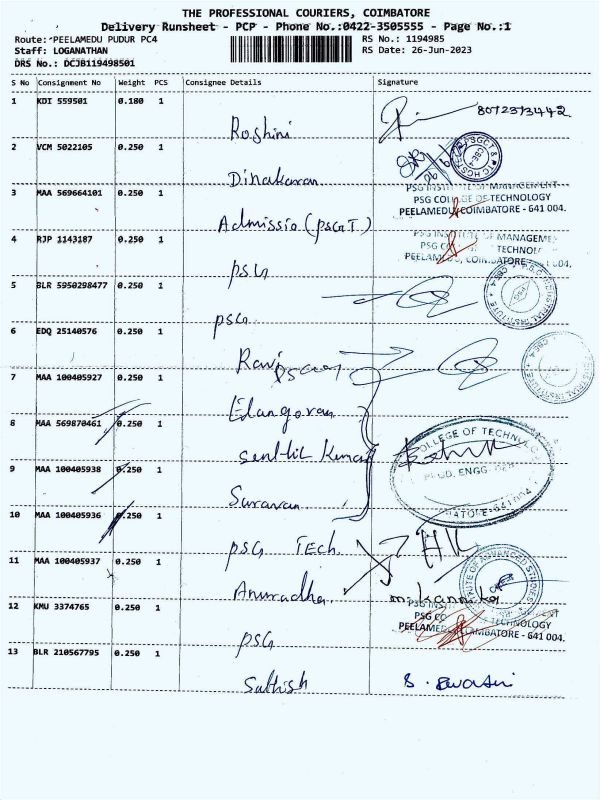 THE PROFESSIONAL COURIERS, COIMBATORE
Delivery Runsheet - PCP - Phone No.:0422-3505555 - Page No.:1
Route: PEELAMEDU PUDUR PC4 RS No.: 1194985
Staff: LOGANATHAN RS Date: 26-Jun-2023
DRS No.: DCJB119498501
S No Consignment No Weight PCS Consignee Details Signature
1 KDI 559501 0.180 1 Roshini 8072373442
2 VCM 5022105 0.250 1 Dinakaran
3 MAA 569664101 0.250 1 Admissio (PSGIT) PSG INSTITUTE OF MANAGEMENT
PSG COLLEGE OF TECHNOLOGY
PEELAMEDU, COIMBATORE - 641 004.
4 RJP 1143187 0.250 1 PSG PSG INSTITUTE OF MANAGEME
PSG CO TECHNOL
PEELAMEDU, COIMBATORE - 641 004.
5 BLR 5950298477 0.250 1 PSG P.S.G. INDUSTRIAL INSTITUTE CBE-4
6 EDQ 25140576 0.250 1 Ravi
7 MAA 100405927 0.250 1 Elangovan
8 MAA 569870461 0.250 1 Senthil Kumar COLLEGE OF TECHNOLO
9 MAA 100405938 0.250 1 Saravan ENGG.
BATORE-641 004
10 MAA 100405936 0.250 1 PSG TECH. HK
11 MAA 100405937 0.250 1 Anuradha INSTITUTE OF ADVANCED STUDIES
12 KMU 3374765 0.250 1 PSG PSG INST
PSG CO TECHNOLOGY
PEELAMEDU, COIMBATORE - 641 004.
13 BLR 210567795 0.250 1 Sathish S.